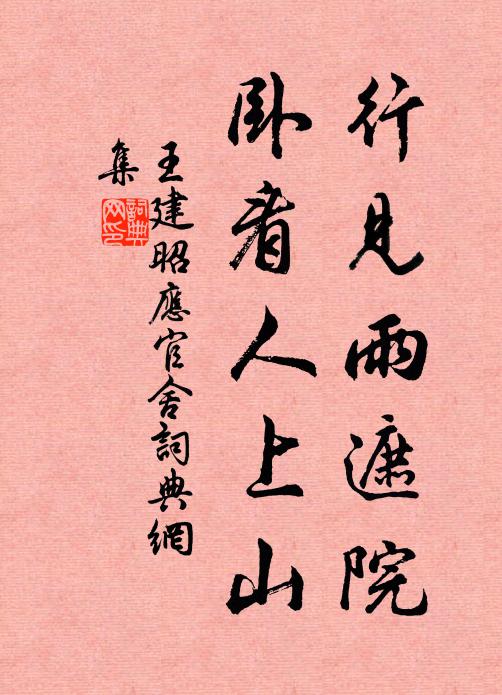 行見雨遮院
卧看人上山
王建昭應官舍詞典網
集
詞典
网印